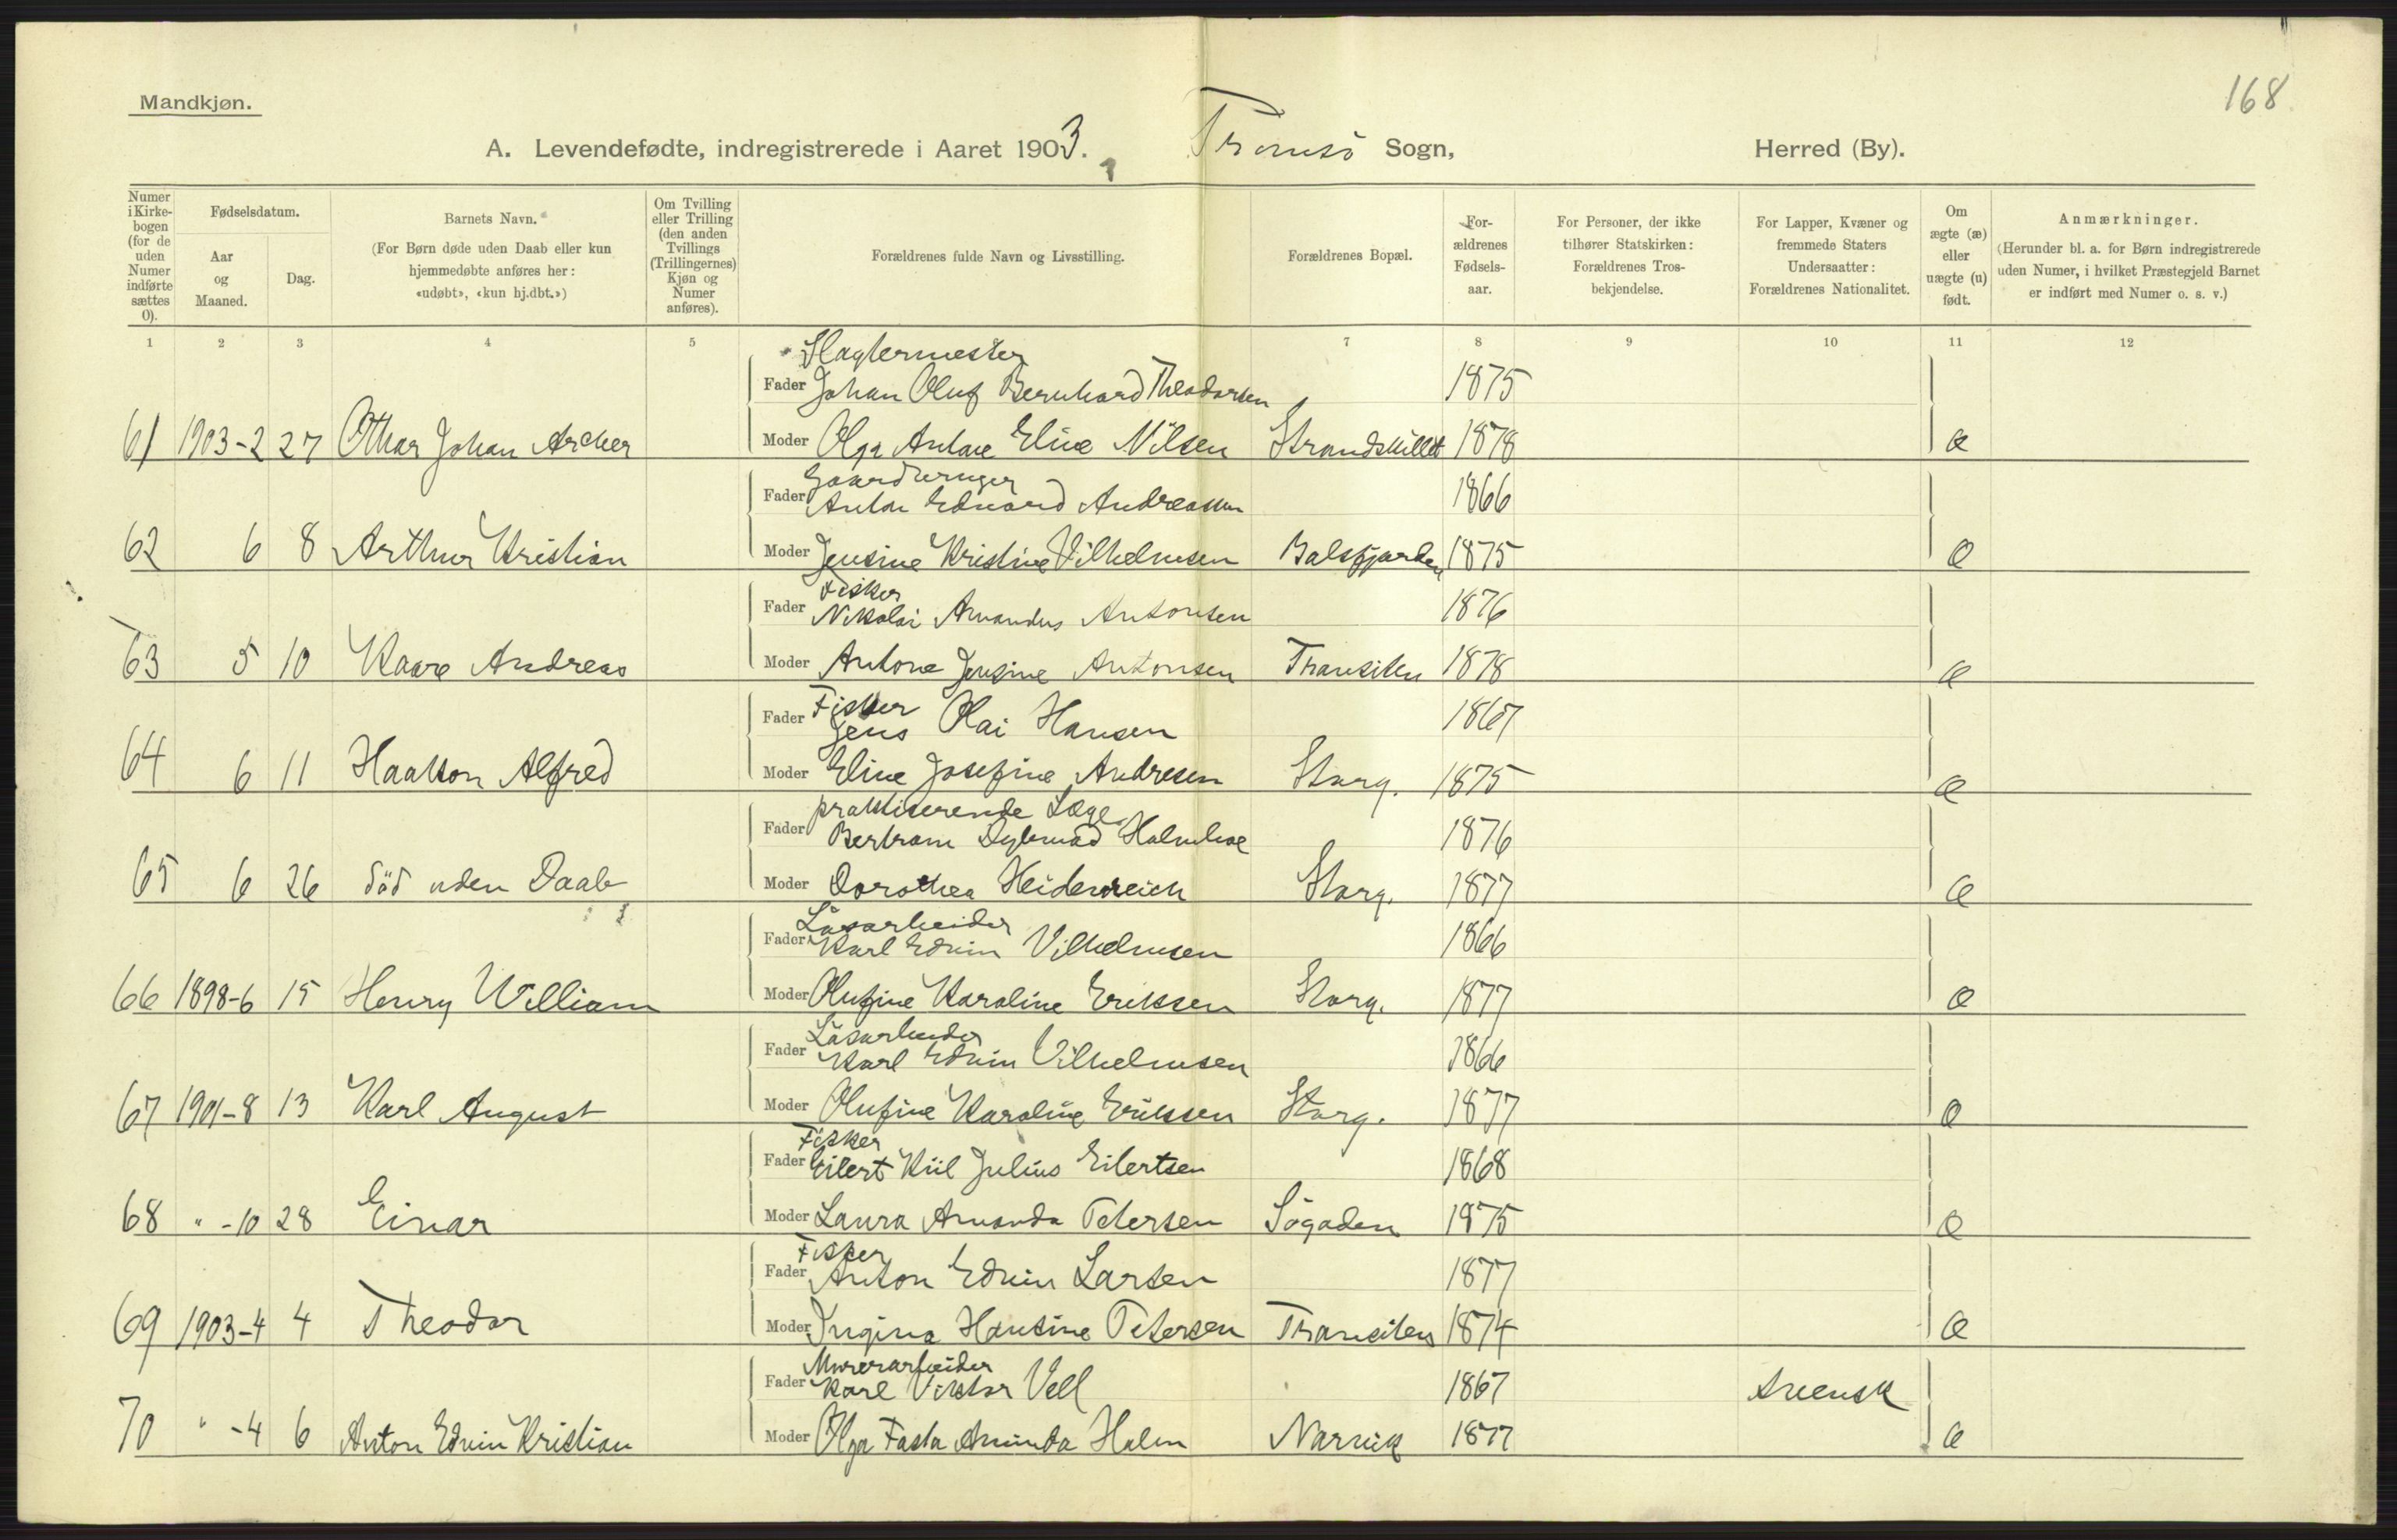 168
Mandkjøn.
A. Levendefødte, indregistrerede i Aaret 1903. Tromsö Sogn, Herred (By).
Numer i Kirke-bogen (for de uden Numer indførte sættes 0).
Fødselsdatum.
Aar og Maaned.
Dag.
Barnets Navn.
(For Børn døde uden Daab eller kun hjemmedøbte anføres her: «udøbt», «kun hj.dbt.»)
Om Tvilling eller Trilling (den anden Tvillings (Trillingernes) Kjøn og Numer anføres).
Forældrenes fulde Navn og Livsstilling.
Forældrenes Bopæl.
For-ældrenes Fødsels-aar.
For Personer, der ikke tilhører Statskirken: Forældrenes Tros-bekjendelse.
For Lapper, Kvæner og fremmede Staters Undersaatter: Forældrenes Nationalitet.
Om ægte (æ) eller uægte (u) født.
Anmærkninger.
(Herunder bl. a. for Børn indregistrerede uden Numer, i hvilket Præstegjeld Barnet er indført med Numer o. s. v.)
1 2 3 4 5 7 8 9 10 11 12
Slagtermester
Fader Johan Oluf Bernhard Theodorsen 1875
61 1903-2 27 Othar Johan Archer Moder Olga Antone Eline Nilsen Strandskillet 1878 æ
Gaardbruger
Fader Anton Edvard Andreassen 1866
62 6 8 Arthur Kristian Moder Jensine Kristine Vilhelmsen Balsfjorden 1875 æ
Fisker
Fader Nikolai Amandus Antonsen 1876
63 5 10 Kaare Andreas Moder Antone Jensine Antonsen Thansiten 1878 æ
Fisker
Fader Jens Olai Hansen 1867
64 6 11 Haakon Alfred Moder Eline Josefine Andresen Storg. 1875 æ
praktiserende Læge
Fader Bertram Dybwad Holmboe 1876
65 6 26 död uden Daab Moder Dorothea Heidenreich Storg. 1877 æ
Lösarbeider
Fader Karl Edvin Vilhelmsen 1866
66 1898-6 15 Henry William Moder Olufine Karoline Eriksen Storg. 1877 æ
Lösarbeider
Fader Karl Edvin Vilhelmsen 1866
67 1901-8 13 Karl August Moder Olufine Karoline Eriksen Storg. 1877 æ
Fisker
Fader Eilert Kiil Julius Eilertsen 1868
68 " -10 28 Einar Moder Laura Amanda Petersen Sögaden 1875 æ
Fisker
Fader Anton Edvin Larsen 1877
69 1903-4 4 Theodor Moder Ingina Hansine Petersen Thansiten 1874 æ
Murerarbeider
Fader Karl Viktor Vell 1867 Svensk
70 " -4 6 Anton Edvin Kristian Moder Olga Fasta Aminda Holm Narvik 1877 æ